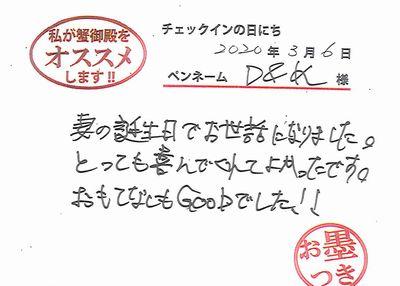 私が蟹御殿を
オススメ
します!!
チェックインの日にち
2020年3月6日
ペンネーム D&K 様
妻の誕生日でお世話になりました。
とっても喜んでくれてよかったです。
おもてなしもGoodでした!!
お墨
つき